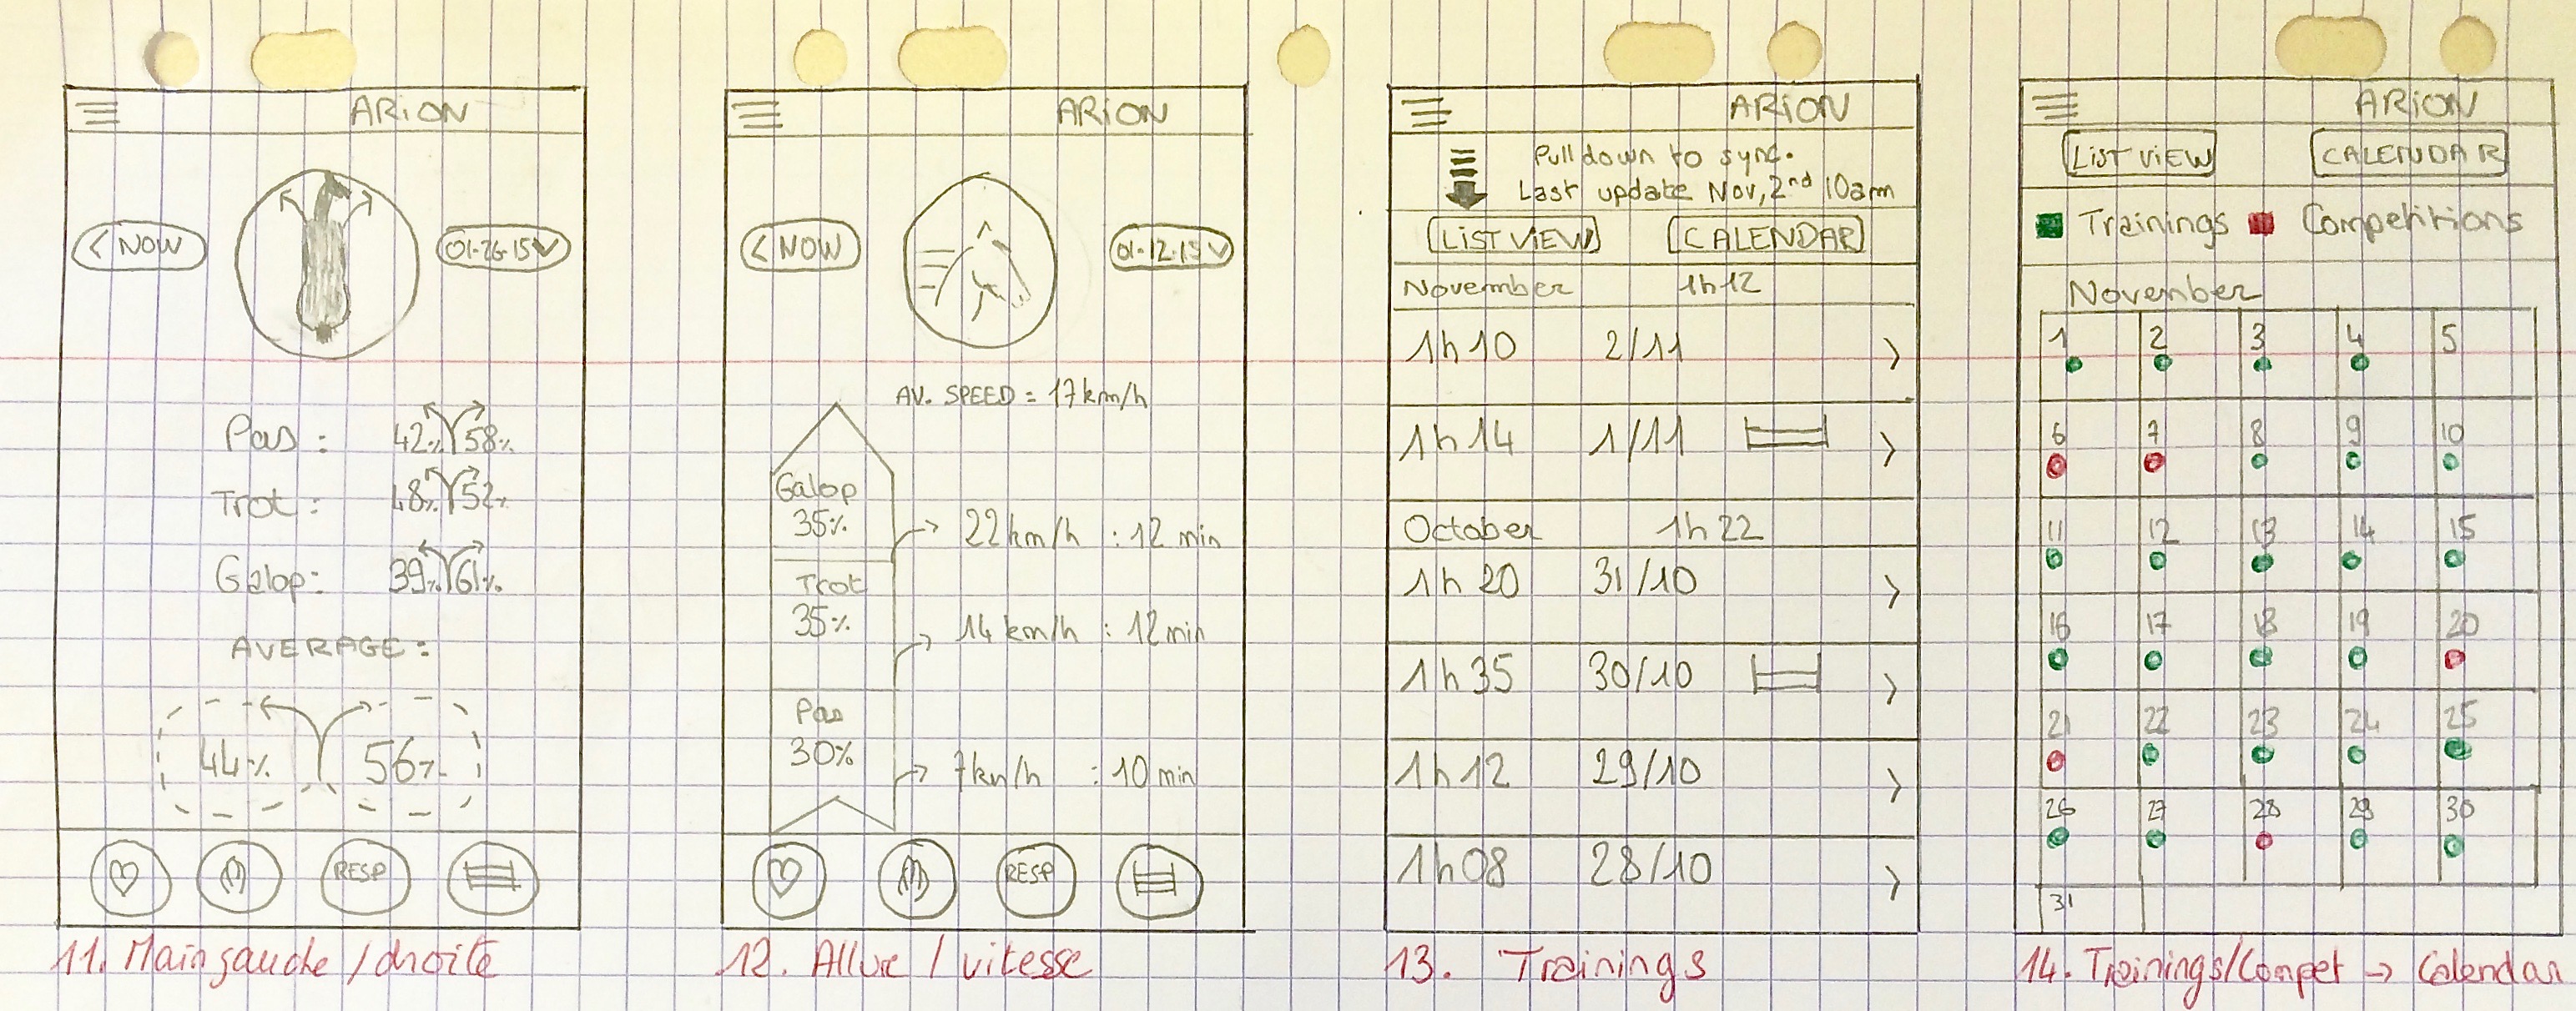 ARION
< NOW
01-26-15
Pas : 42% 58%
Trot : 48% 52%
Galop : 39% 61%
AVERAGE :
44% 56%
RESP
11. Main gauche / droite
ARION
< NOW
01-12-15
AV. SPEED = 17km/h
Galop
35%
22km/h : 12 min
Trot
35%
14 km/h : 12 min
Pas
30%
7km/h : 10 min
RESP
12. Allure / vitesse
ARION
Pull down to sync.
Last update Nov, 2nd 10am
LIST VIEW CALENDAR
November 1h12
1h10 2/11 >
1h14 1/11 >
October 1h22
1h20 31/10 >
1h35 30/10 >
1h12 29/10 >
1h08 28/10 >
13. Trainings
ARION
LIST VIEW CALENDAR
Trainings Competitions
November
1 2 3 4 5
6 7 8 9 10
11 12 13 14 15
16 17 18 19 20
21 22 23 24 25
26 27 28 29 30
31
14. Trainings/Compet → Calendar